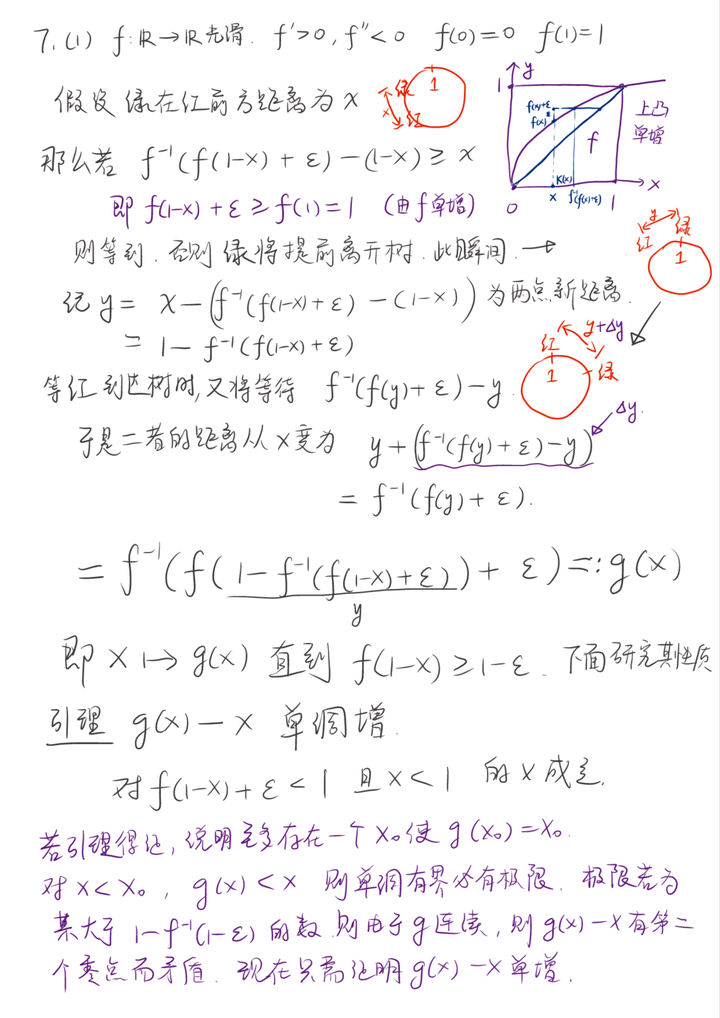 7. (1) f: ℝ→ℝ 光滑. f'>0, f''<0 f(0)=0 f(1)=1
假设 绿在红前方距离为 x
绿
1
x
红
y
1
f(x)+ε
f(x)
f
K(x)
0
x
f⁻¹(f(x)+ε)
1
x
上凸
单增
那么若 f⁻¹(f(1-x)+ε)-(1-x) ≥ x
即 f(1-x)+ε ≥ f(1)=1 (由f单增)
则等到. 否则绿将提前离开树. 此瞬间. →
y
红
绿
1
记 y = x-(f⁻¹(f(1-x)+ε)-(1-x)) 为两点新距离.
= 1-f⁻¹(f(1-x)+ε)
红
y+Δy
1
绿
等红到达树时, 又将等待 f⁻¹(f(y)+ε)-y
于是二者的距离从x变为 y+(f⁻¹(f(y)+ε)-y)
Δy.
= f⁻¹(f(y)+ε).
= f⁻¹(f(1-f⁻¹(f(1-x)+ε))+ε) =: g(x)
y
即 x ↦ g(x) 直到 f(1-x) ≥ 1-ε. 下面研究其性质
引理 g(x)-x 单调增.
对 f(1-x)+ε<1 且 x<1 的 x 成立.
若引理得证, 说明至多存在一个 x₀ 使 g(x₀)=x₀.
对 x<x₀, g(x)<x 则单调有界必有极限. 极限若为
某大于 1-f⁻¹(1-ε) 的数. 则由于g连续, 则 g(x)-x 有第二
个零点而矛盾. 现在只需证明 g(x)-x 单增.